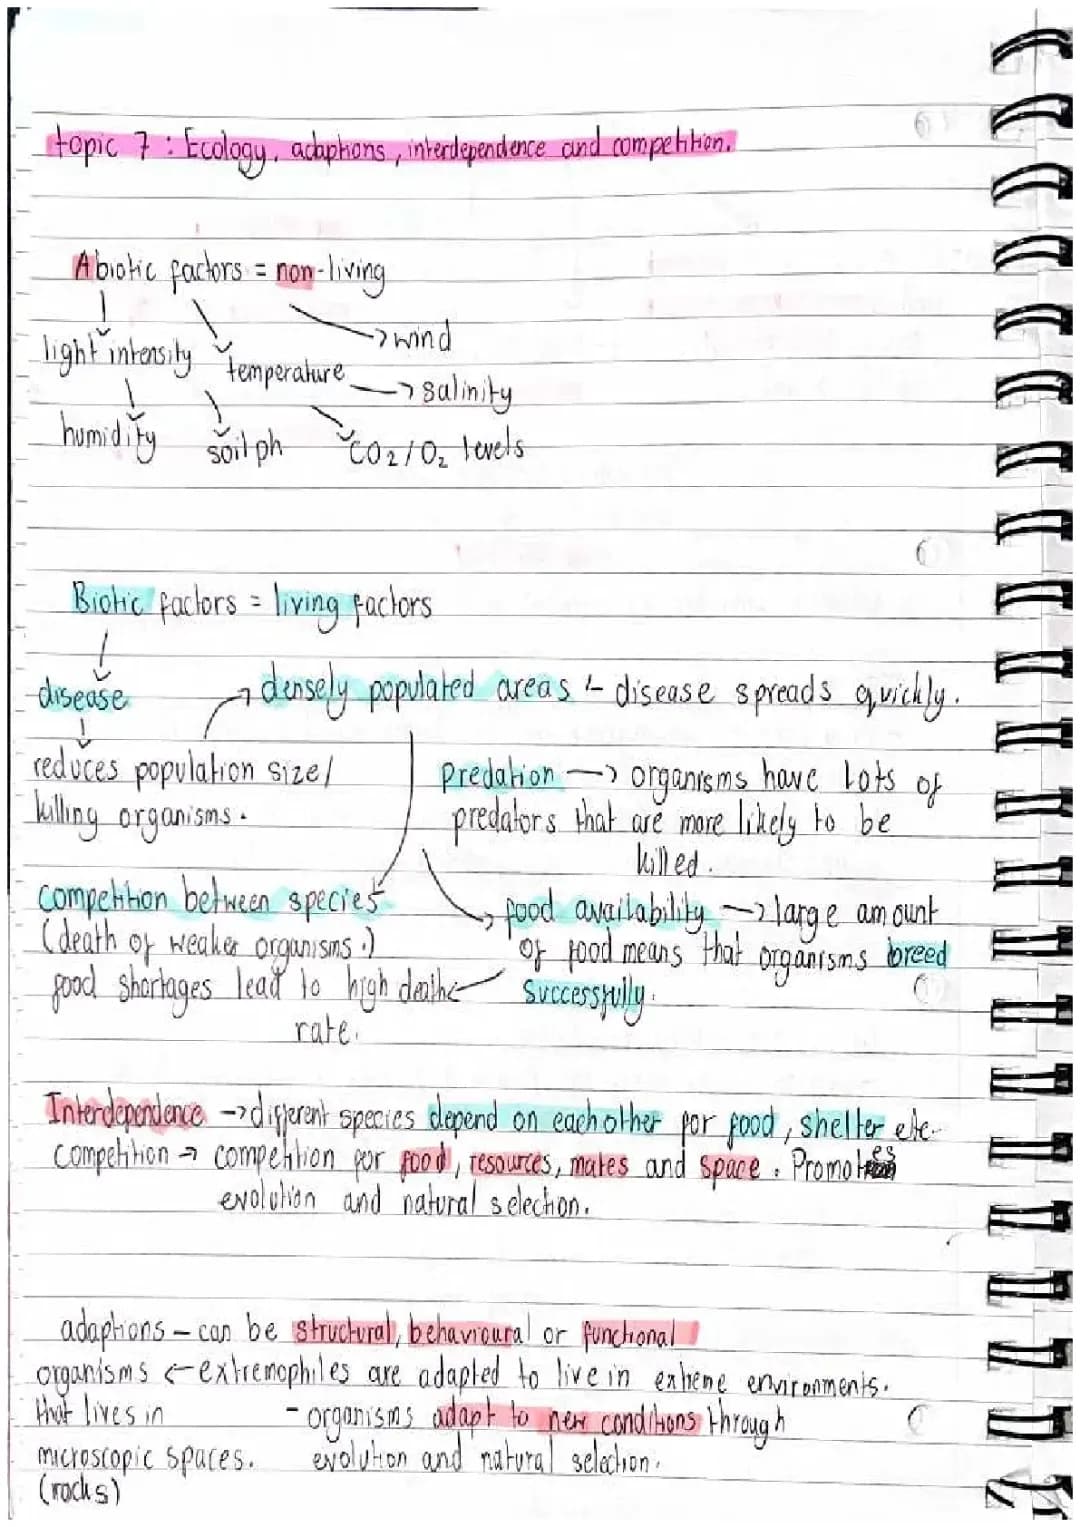 topic 7 : Ecology, adaptions, interdependence and competition.
Abiotic factors = non-living
→ wind
light intensity
temperature
→ salinity
humidity soil ph CO2/O2 levels
Biotic factors = living factors
disease → densely populated areas :- disease spreads quickly.
reduces population size/
killing organisms.
predation → organisms have lots of
predators that are more likely to be
killed.
competition between species
(death of weaker organisms.)
food shortages lead to high death
rate.
food availability → large amount
of food means that organisms breed
successfully.
Interdependence → different species depend on each other for food, shelter etc.
competition → competition for food, resources, mates and space. Promotes
evolution and natural selection.
adaptions - can be structural, behavioural or functional
organisms ← extremophiles are adapted to live in extreme environments.
that lives in - organisms adapt to new conditions through
microscopic spaces. evolution and natural selection.
(rocks)